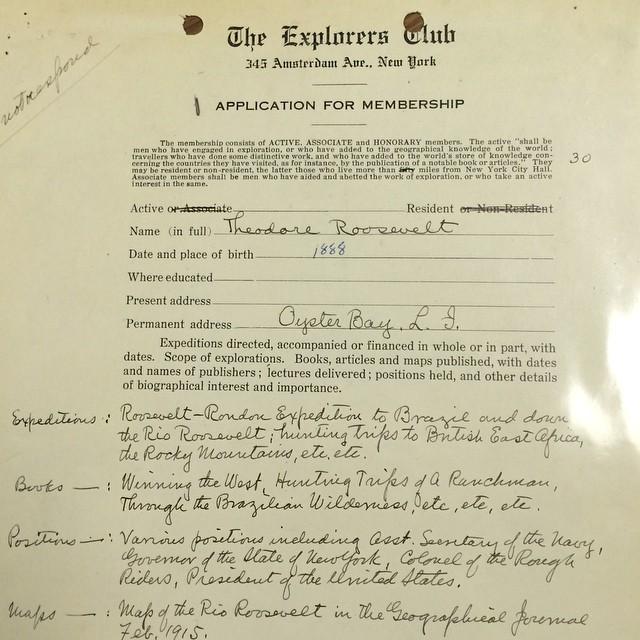 The Explorers Club
345 Amsterdam Ave., New York
not respond
APPLICATION FOR MEMBERSHIP
The membership consists of ACTIVE, ASSOCIATE and HONORARY members. The active "shall be
men who have engaged in exploration, or who have added to the geographical knowledge of the world;
travellers who have done some distinctive work, and who have added to the world's store of knowledge con-
cerning the countries they have visited, as for instance, by the publication of a notable book or articles." They
may be resident or non-resident, the latter those who live more than fifty miles from New York City Hall.
30
Associate members shall be men who have aided and abetted the work of exploration, or who take an active
interest in the same.
Active or Associate Resident or Non-Resident
Name (in full) Theodore Roosevelt
Date and place of birth 1888
Where educated
Present address
Permanent address Oyster Bay, L. I.
Expeditions directed, accompanied or financed in whole or in part, with
dates. Scope of explorations. Books, articles and maps published, with dates
and names of publishers; lectures delivered; positions held, and other details
of biographical interest and importance.
Expeditions: Roosevelt-Rondon Expedition to Brazil and down
the Rio Roosevelt; hunting trips to British East Africa,
the Rocky Mountains, etc, etc.
Books —: Winning the West, Hunting Trips of A Ranchman,
Through the Brazilian Wilderness, etc, etc, etc.
Positions —: Various positions including Asst. Secretary of the Navy,
Governor of the State of New York, Colonel of the Rough
Riders, President of the United States.
Maps —: Map of the Rio Roosevelt in the Geographical Journal
Feb, 1915.